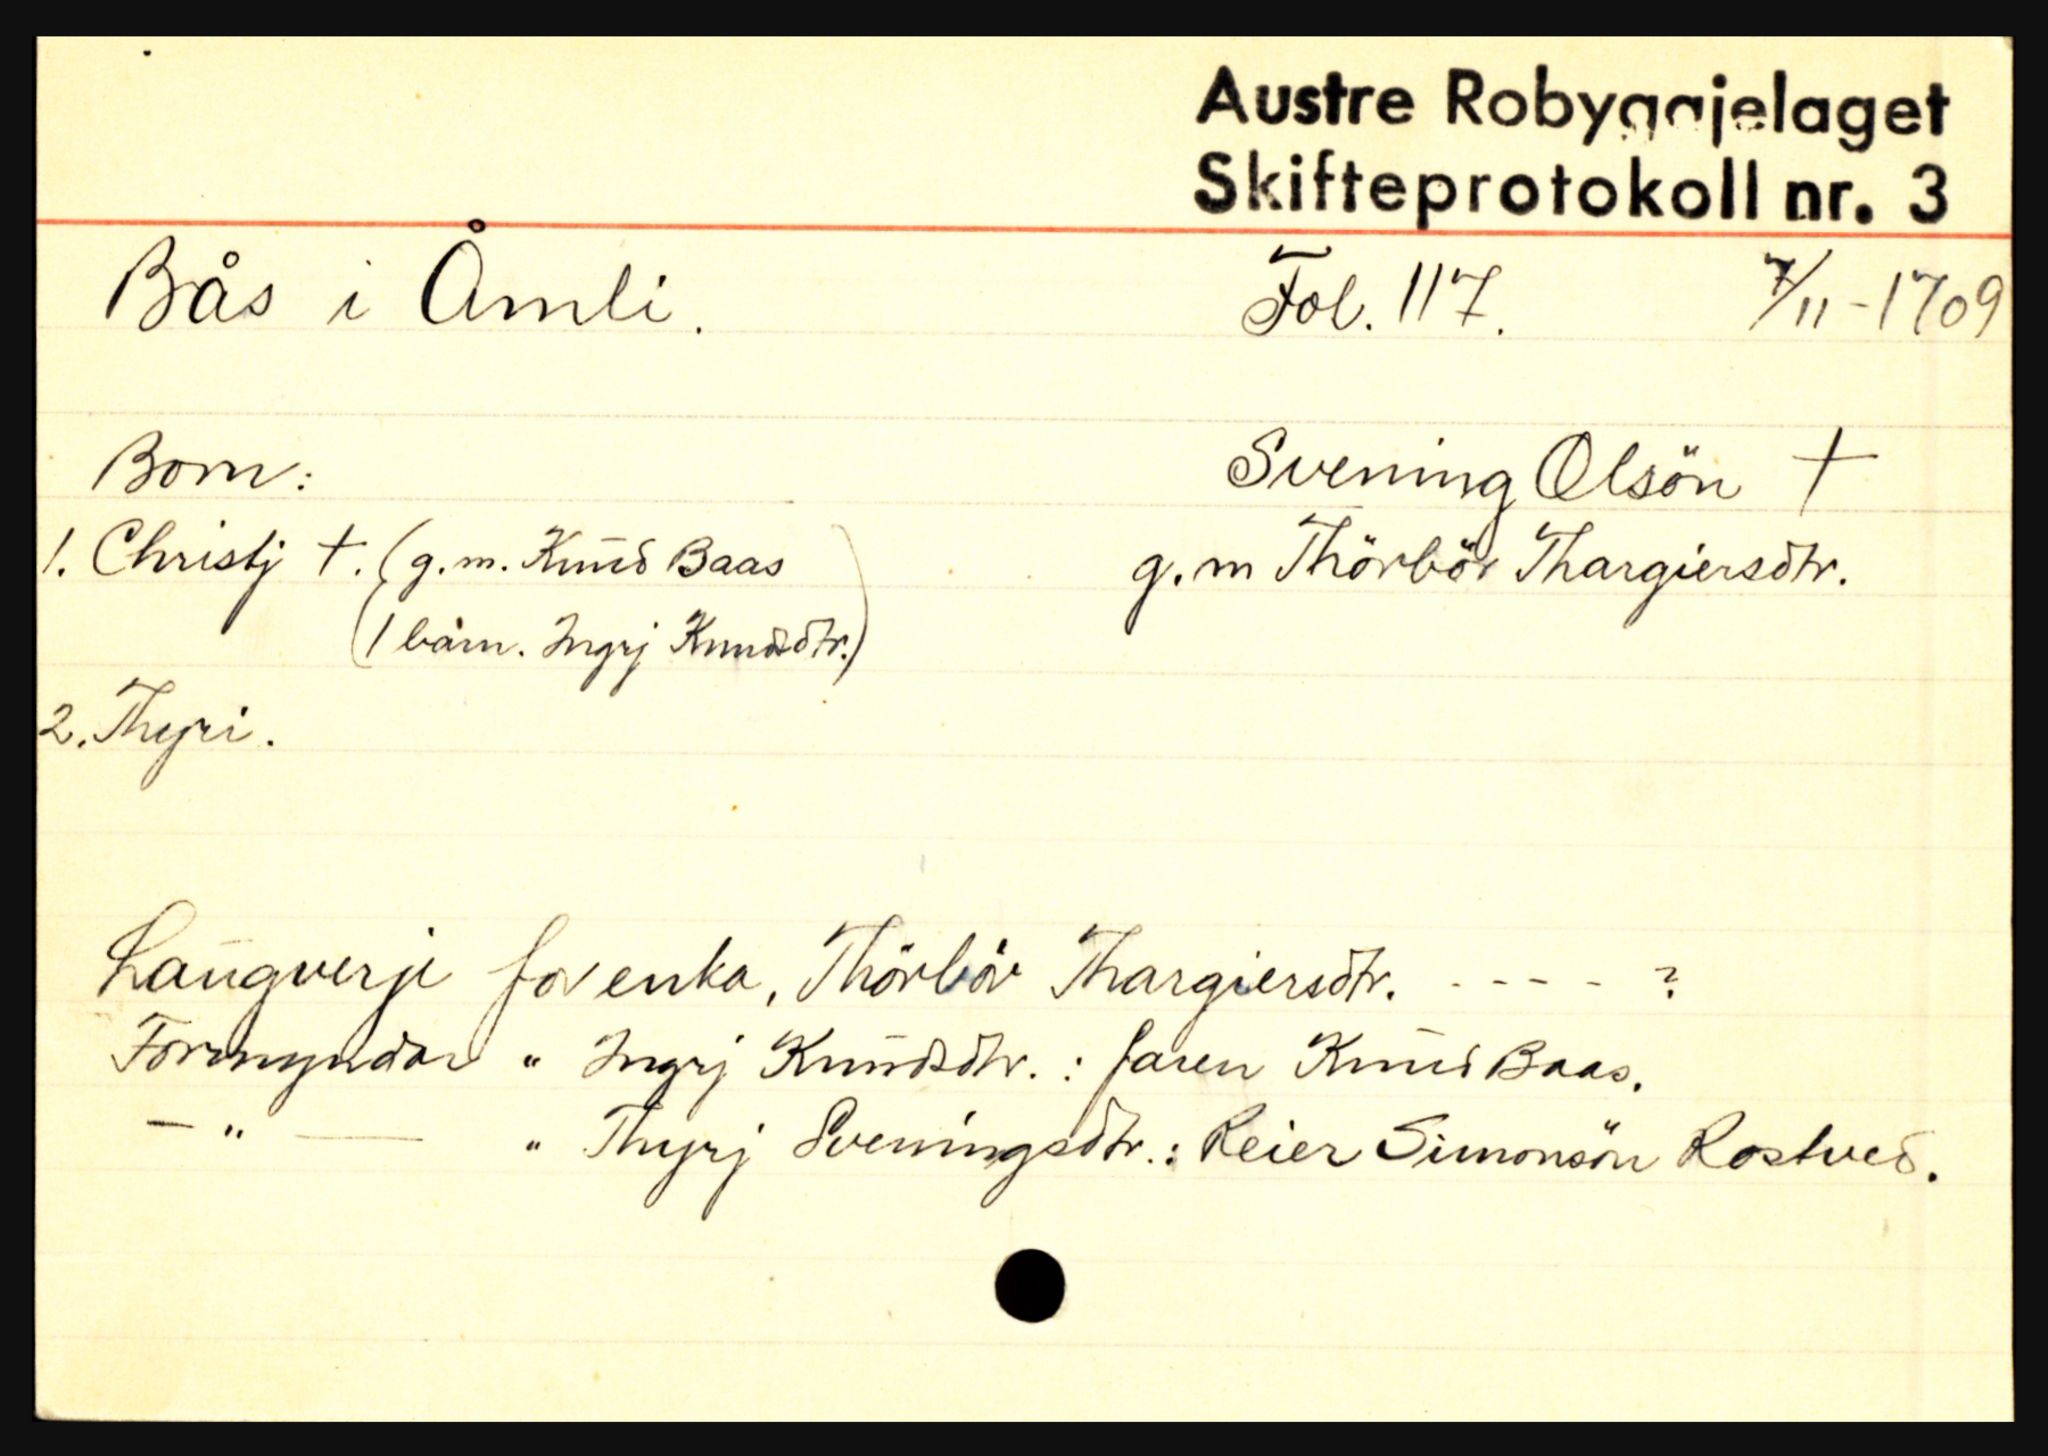 Austre Robyggjelaget
Skifteprotokoll nr. 3
Bås i Åmli. Fol. 117. 7/11-1709
Born: Svening Olsön †
1. Christj †. (g.m. Knud Baas g.m Thörbör Thargiersdtr.
(1 bårn. Ingrj Knudsdtr.)
2. Thyri.
Laugverje for enka, Thörbör Thargiersdtr. - - - - ?
Formyndar " Ingrj Knudsdtr. : faren Knud Baas.
— " — " Thyrj Sveningsdtr.: Reier Simonsön Rostved.